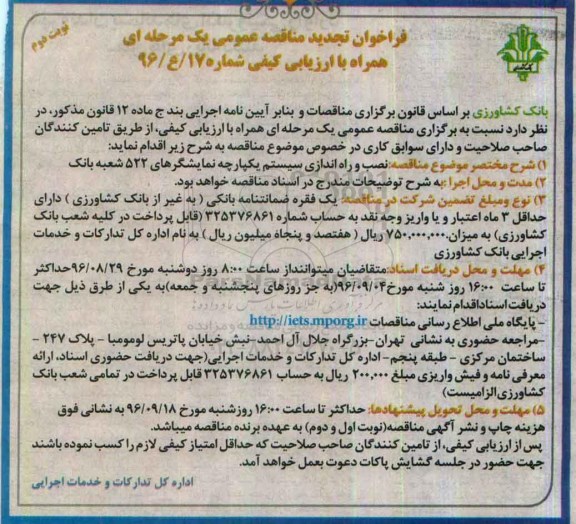 نوبت دوم
فراخوان تجدید مناقصه عمومی یک مرحله ای
همراه با ارزیابی کیفی شماره ۱۷/ع/۹۶
بانک کشاورزی بر اساس قانون برگزاری مناقصات و بنابر آیین نامه اجرایی بند ج ماده ۱۲ قانون مذکور، در
نظر دارد نسبت به برگزاری مناقصه عمومی یک مرحله ای همراه با ارزیابی کیفی، از طریق تامین کنندگان
صاحب صلاحیت و دارای سوابق کاری در خصوص موضوع مناقصه به شرح زیر اقدام نماید:
۱) شرح مختصر موضوع مناقصه: نصب و راه اندازی سیستم یکپارچه نمایشگرهای ۵۲۲ شعبه بانک
۲) مدت و محل اجرا: به شرح توضیحات مندرج در اسناد مناقصه خواهد بود.
۳) نوع ومبلغ تضمین شرکت در مناقصه: یک فقره ضمانتنامه بانکی ( به غیر از بانک کشاورزی ) دارای
حداقل ۳ ماه اعتبار و یا واریز وجه نقد به حساب شماره ۳۲۵۳۷۶۸۶۱ (قابل پرداخت در کلیه شعب بانک
کشاورزی) به میزان ۷۵۰,۰۰۰,۰۰۰ ریال ( هفتصد و پنجاه میلیون ریال ) به نام اداره کل تدارکات و خدمات
اجرایی بانک کشاورزی
۴) مهلت و محل دریافت اسناد: متقاضیان میتوانند از ساعت ۸:۰۰ روز دوشنبه مورخ ۹۶/۰۸/۲۹ حداکثر
تا ساعت ۱۶:۰۰ روز شنبه مورخ ۹۶/۰۹/۰۴ (به جز روزهای پنجشنبه و جمعه) به یکی از طرق ذیل جهت
دریافت اسناد اقدام نمایند:
- پایگاه ملی اطلاع رسانی مناقصات http://iets.mporg.ir
-مراجعه حضوری به نشانی تهران-بزرگراه جلال آل احمد-نبش خیابان پاتریس لومومبا - پلاک ۲۴۷ -
ساختمان مرکزی - طبقه پنجم- اداره کل تدارکات و خدمات اجرایی(جهت دریافت حضوری اسناد، ارائه
معرفی نامه و فیش واریزی مبلغ ۲۰۰,۰۰۰ ریال به حساب ۳۲۵۳۷۶۸۶۱ قابل پرداخت در تمامی شعب بانک
کشاورزی الزامیست)
۵) مهلت و محل تحویل پیشنهادها: حداکثر تا ساعت ۱۶:۰۰ روزشنبه مورخ ۹۶/۰۹/۱۸ به نشانی فوق
هزینه چاپ و نشر آگهی مناقصه(نوبت اول و دوم) به عهده برنده مناقصه میباشد.
پس از ارزیابی کیفی، از تامین کنندگان صاحب صلاحیت که حداقل امتیاز کیفی لازم را کسب نموده باشند
جهت حضور در جلسه گشایش پاکات دعوت بعمل خواهد آمد.
اداره کل تدارکات و خدمات اجرایی